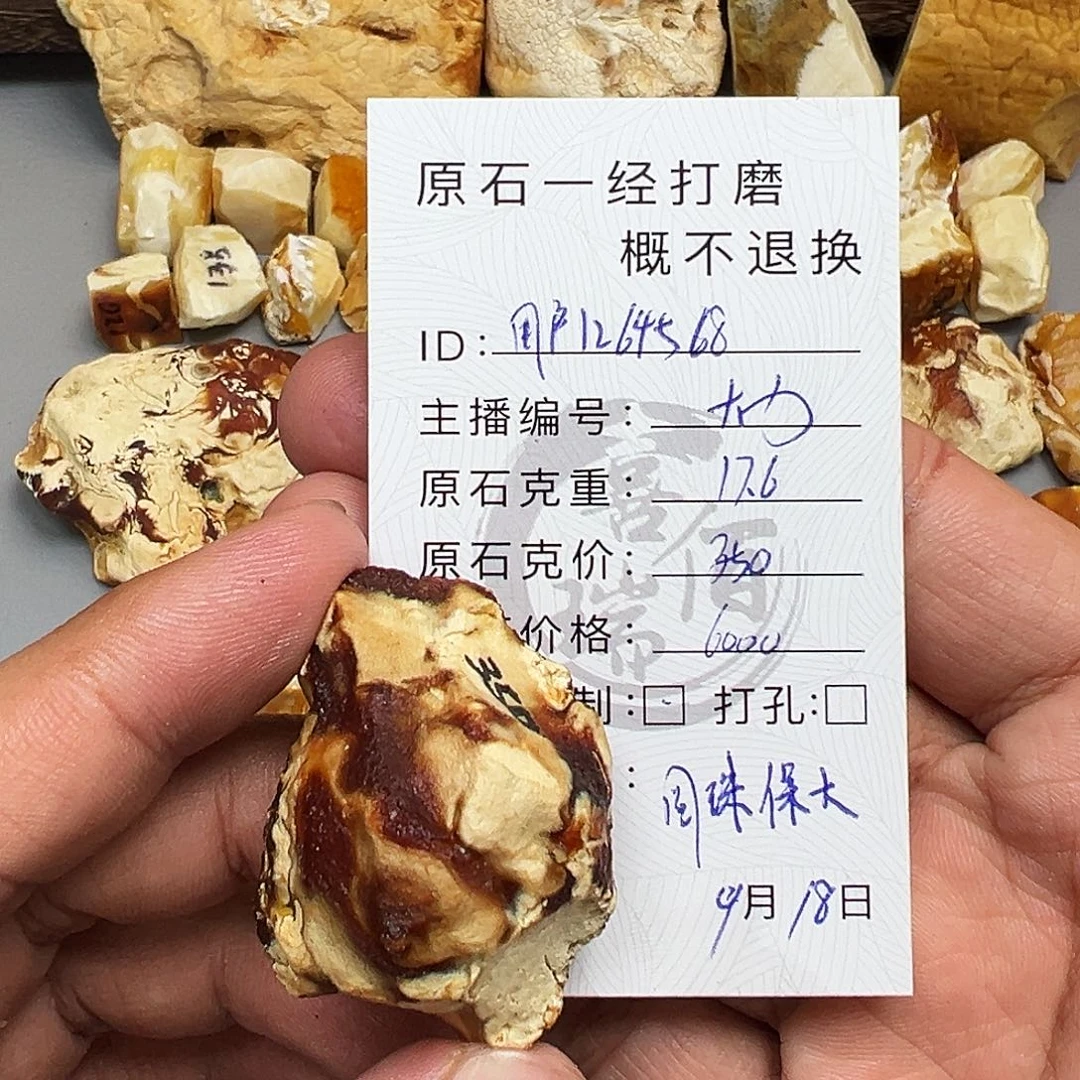 原石一经打磨
概不退换
ID：用户1264568
主播编号：
原石克重：17.6
原石克价：350
价格：6000
制：打孔：
：圆珠保大
4月18日
喜佰瑞
135
350